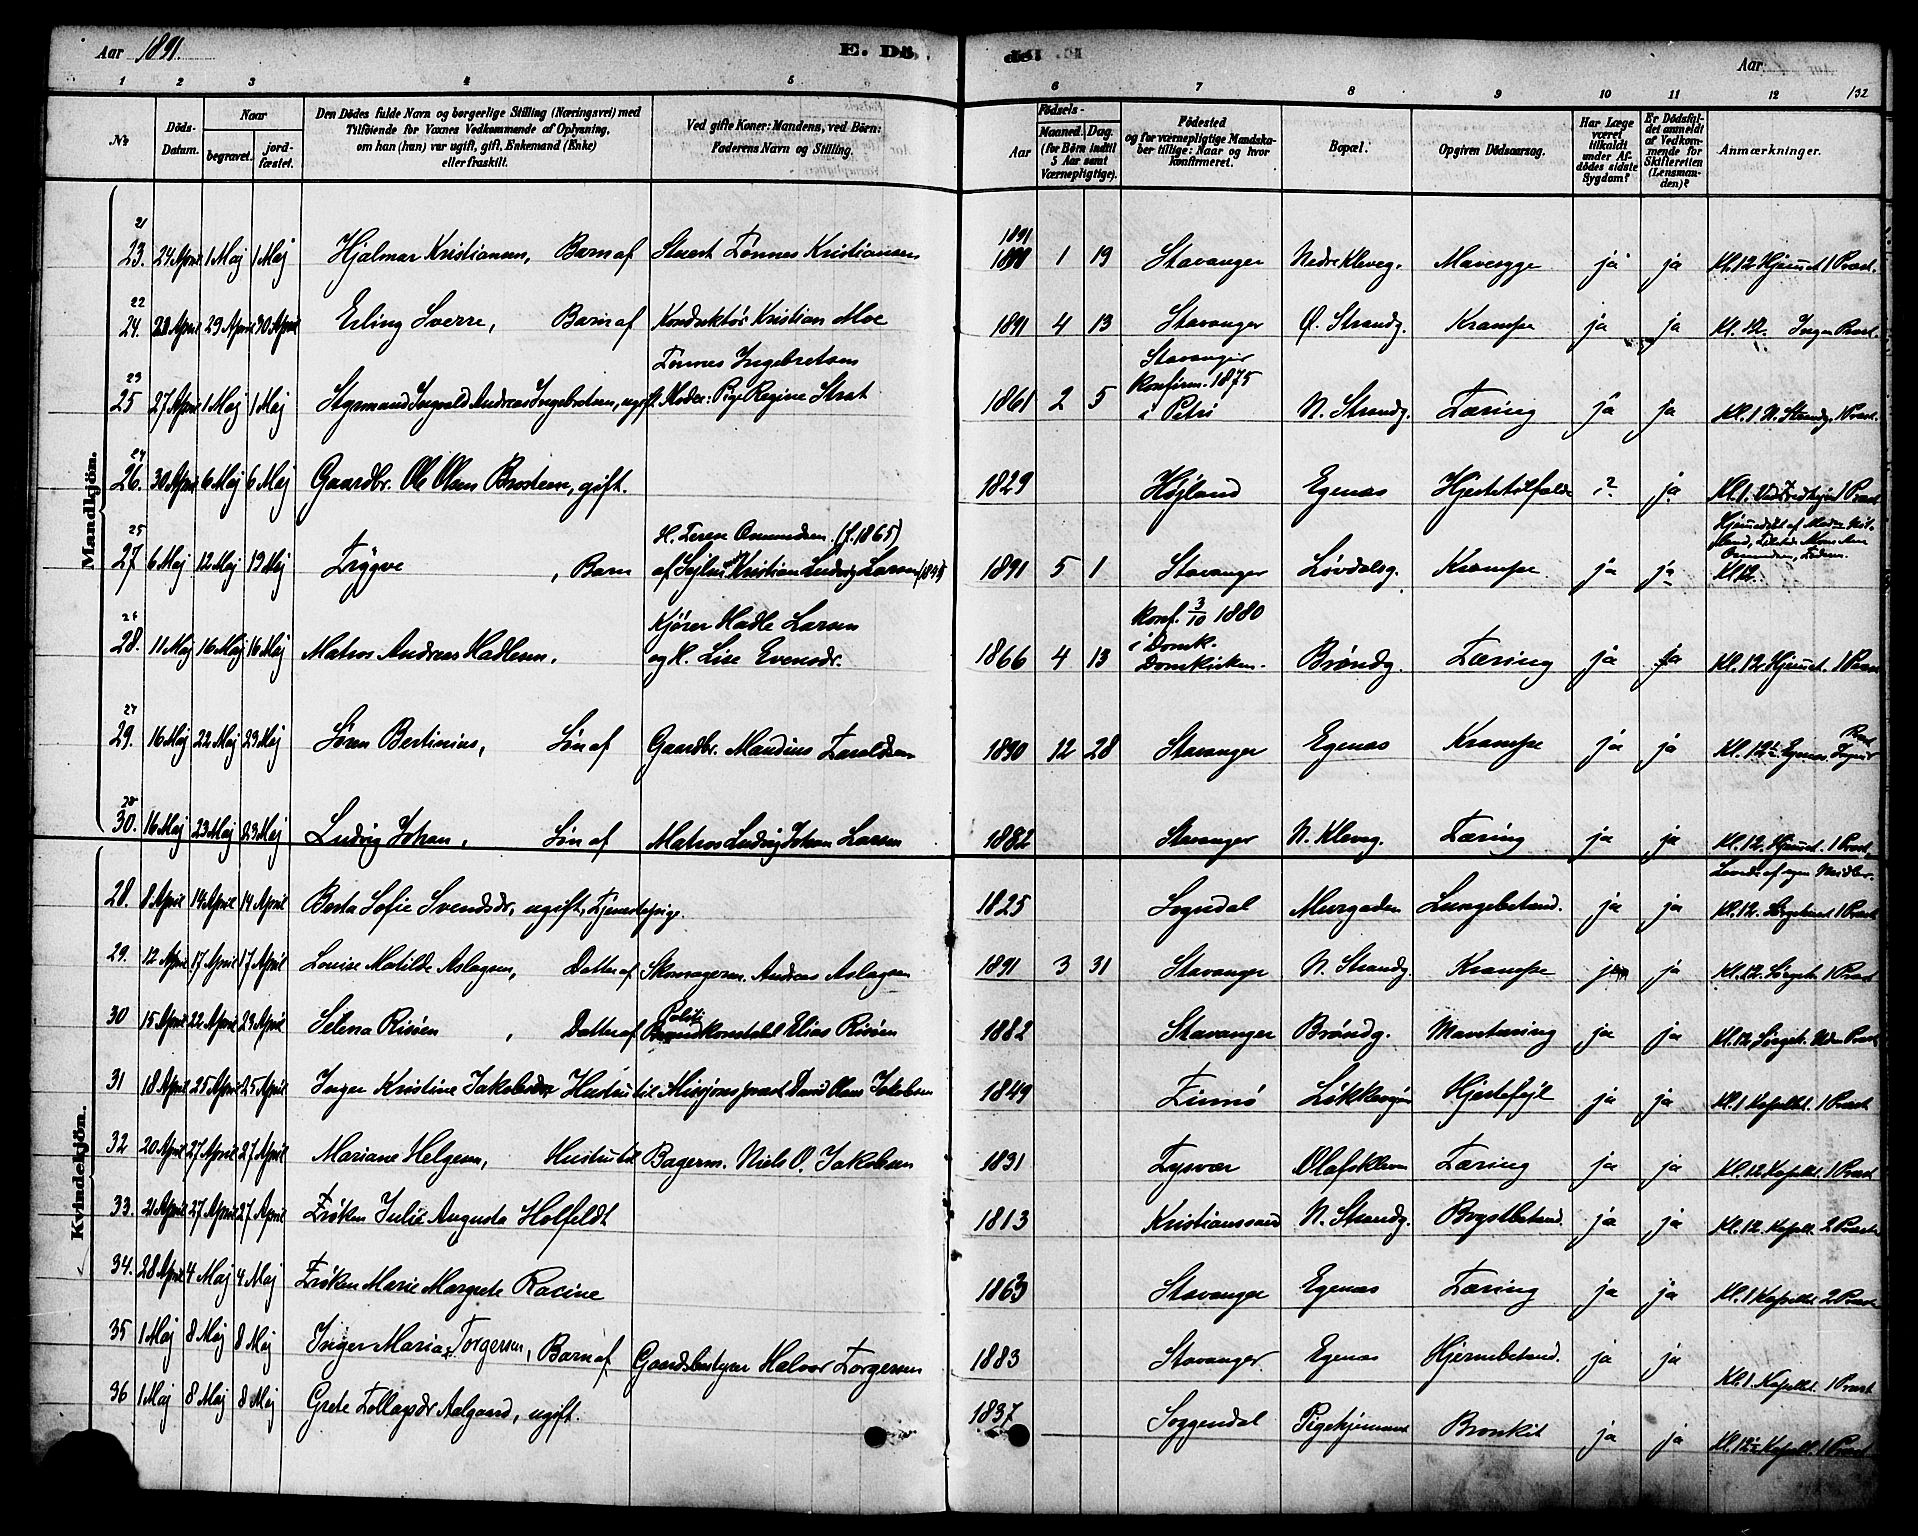 Aar 1891. E. Dö
Aar 132
1 2 3 4 5 6 7 8 9 10 11 12
No
Döds-Datum.
Naar
begravet.
jord-fæstet.
Den Dödes fulde Navn og borgerlige Stilling (Næringsvei) med
Tilföiende for Voxnes Vedkommende af Oplysning,
om han (hun) var ugift, gift, Enkemand (Enke)
eller fraskilt.
Ved gifte Koner: Mandens, ved Börn:
Faderens Navn og Stilling.
Födsels-
Aar
Maaned. Dag.
(for Börn indtil
5 Aar samt
Værnepligtige).
Födested
og for værnepligtige Mandska-
ber tillige: Naar og hvor
konfirmeret.
Bopæl.
Opgiven Dödsaarsag.
Har Læge
været
tilkaldt
under Af-
dödes sidste
Sygdom?
Er Dödsfal-
det anmeldt
af Vedkom-
mende for
Skifteretten
(Lensman-
den)?
Anmærkninger.
Mandkjön.
21
1891
23. 24 April 1 Maj 1 Maj Hjalmar Kristiansen, Barn af Stuert Tønnes Kristiansen 1 19 Stavanger Nedre Kleveg. Mavesyge ja ja Kl. 12 Hjemmet 1 Præst.
22
24. 28 April 29 April 30 April Erling Sverre, Barn af Konduktør Kristian Moe 1891 4 13 Stavanger Ø. Strandg. Krampe ja ja Kl. 12. Ingen Præst.
23
Tønnes Ingebretsen Stavanger
25 27 April 1 Maj 1 Maj Styrmand Ingvald Andreas Ingebretsen, ugift. Moder: Pige Regine Strat 1861 2 5 Konfirm. 1875
i Petri N. Strandg. Tæring ja ja Kl. 1 N. Strandg. 1 Præst.
24
26. 30 April 6 Maj 6 Maj Gaardbr. Ole Olsen Brosteen, gift. 1829 Højland Egenæs Hjertetilfælde ? ja Kl. 1. 1 Præst
25
H. Terese Omundsen (f. 1865)
27 6 Maj 12 Maj 19 Maj Trygve, Barn af Kristian Ludvig Larsen 1891 5 1 Stavanger Løvdalsg. Krampe ja ja Kl 12.
28. 11 Maj 16 Maj 16 Maj Matros Andreas Hadlesen, Kjører Hadle Larsen
og H. Lise Evensdr. 1866 4 13 Konf. 3/10 1880
i Domk.
Domkirken. Brøndg. Tæring ja ja Kl. 12. Hjemmet. 1 Præst
27
29. 16 Maj 22 Maj 23 Maj Søren Bertinius, Søn af Gaardbr. Maudius Taraldsen 1890 12 28 Stavanger Egenæs Krampe ja ja Kl. 12½ Egenæs. Ingen Præst
28
30. 16 Maj 23 Maj 23 Maj Ludvig Johan, Søn af Matros Ludvig Johan Larsen 1882 Stavanger N. Kleveg. Tæring ja ja Kl. 12. Hjemmet. 1 Præst,
Kvindekjön.
28. 8 April 14 April 14 April Berta Sofie Svendsdr, ugift, Tjenestepige. 1825 Sogndal Murgaden Lungebetænd. ja ja Kl. 12. Sørgehuset 1 Præst
29. 12 April 17 April 17 April Louise Matilde Aslagsen, Datter af Skomagerm. Andreas Aslagsen 1891 3 31 Stavanger N. Strandg. Krampe ja Kl. 12. Sørgeh. 1 Præst
Politi
30 15 April 22 April 23 April Selena Risøen, Datter af konstabel Elias Risøen 1882 Stavanger Brøndg. Mavetæring ja ja Kl. 12 Sørgeh. Uden Præst
31 18 April 25 April 25 April Inger Kristine Jakobsdr Hustru til Missjonsprest David Olaus Jakobsen 1849 Finnø Løkkevejen Hjertefejl ja ja Kl. 1 Kapellet. 1 Præst
32 20 April 27 April 27 April Mariane Helgesen, Hustru til Bagerm. Niels O. Jakobsen 1831 Tysvær Olafskleven Tæring ja ja Kl. 12 Kapellet. 1 Præst
33. 21 April 27 April 27 April Frøken Julie Augusta Holfeldt 1813 Kristianssand N. Strandg. Brystbetænd. ja ja Kl. 12. Kapell. 2 Præster
34. 28 April 4 Maj 4 Maj Frøken Marie Margrete Racine 1863 Stavanger Egenæs Tæring ja ja Kl. 1 Kapellet 2 Præster
35 1 Maj 8 Maj 8 Maj Inger Maria Torgersen, Barn af Gaardsbestyrer Halvor Torgersen 1883 Stavanger. Egenæs Hjernebetænd. ja ja Kl. 1. Kapellet. 1 Præst
36 1 Maj 8 Maj 8 Maj Grete Tollagsdr Aalgaard, ugift. 1837 Soggendal Pigehjemmet Bronkit ja ja Kl. 12½ Kapell. 1 Præst